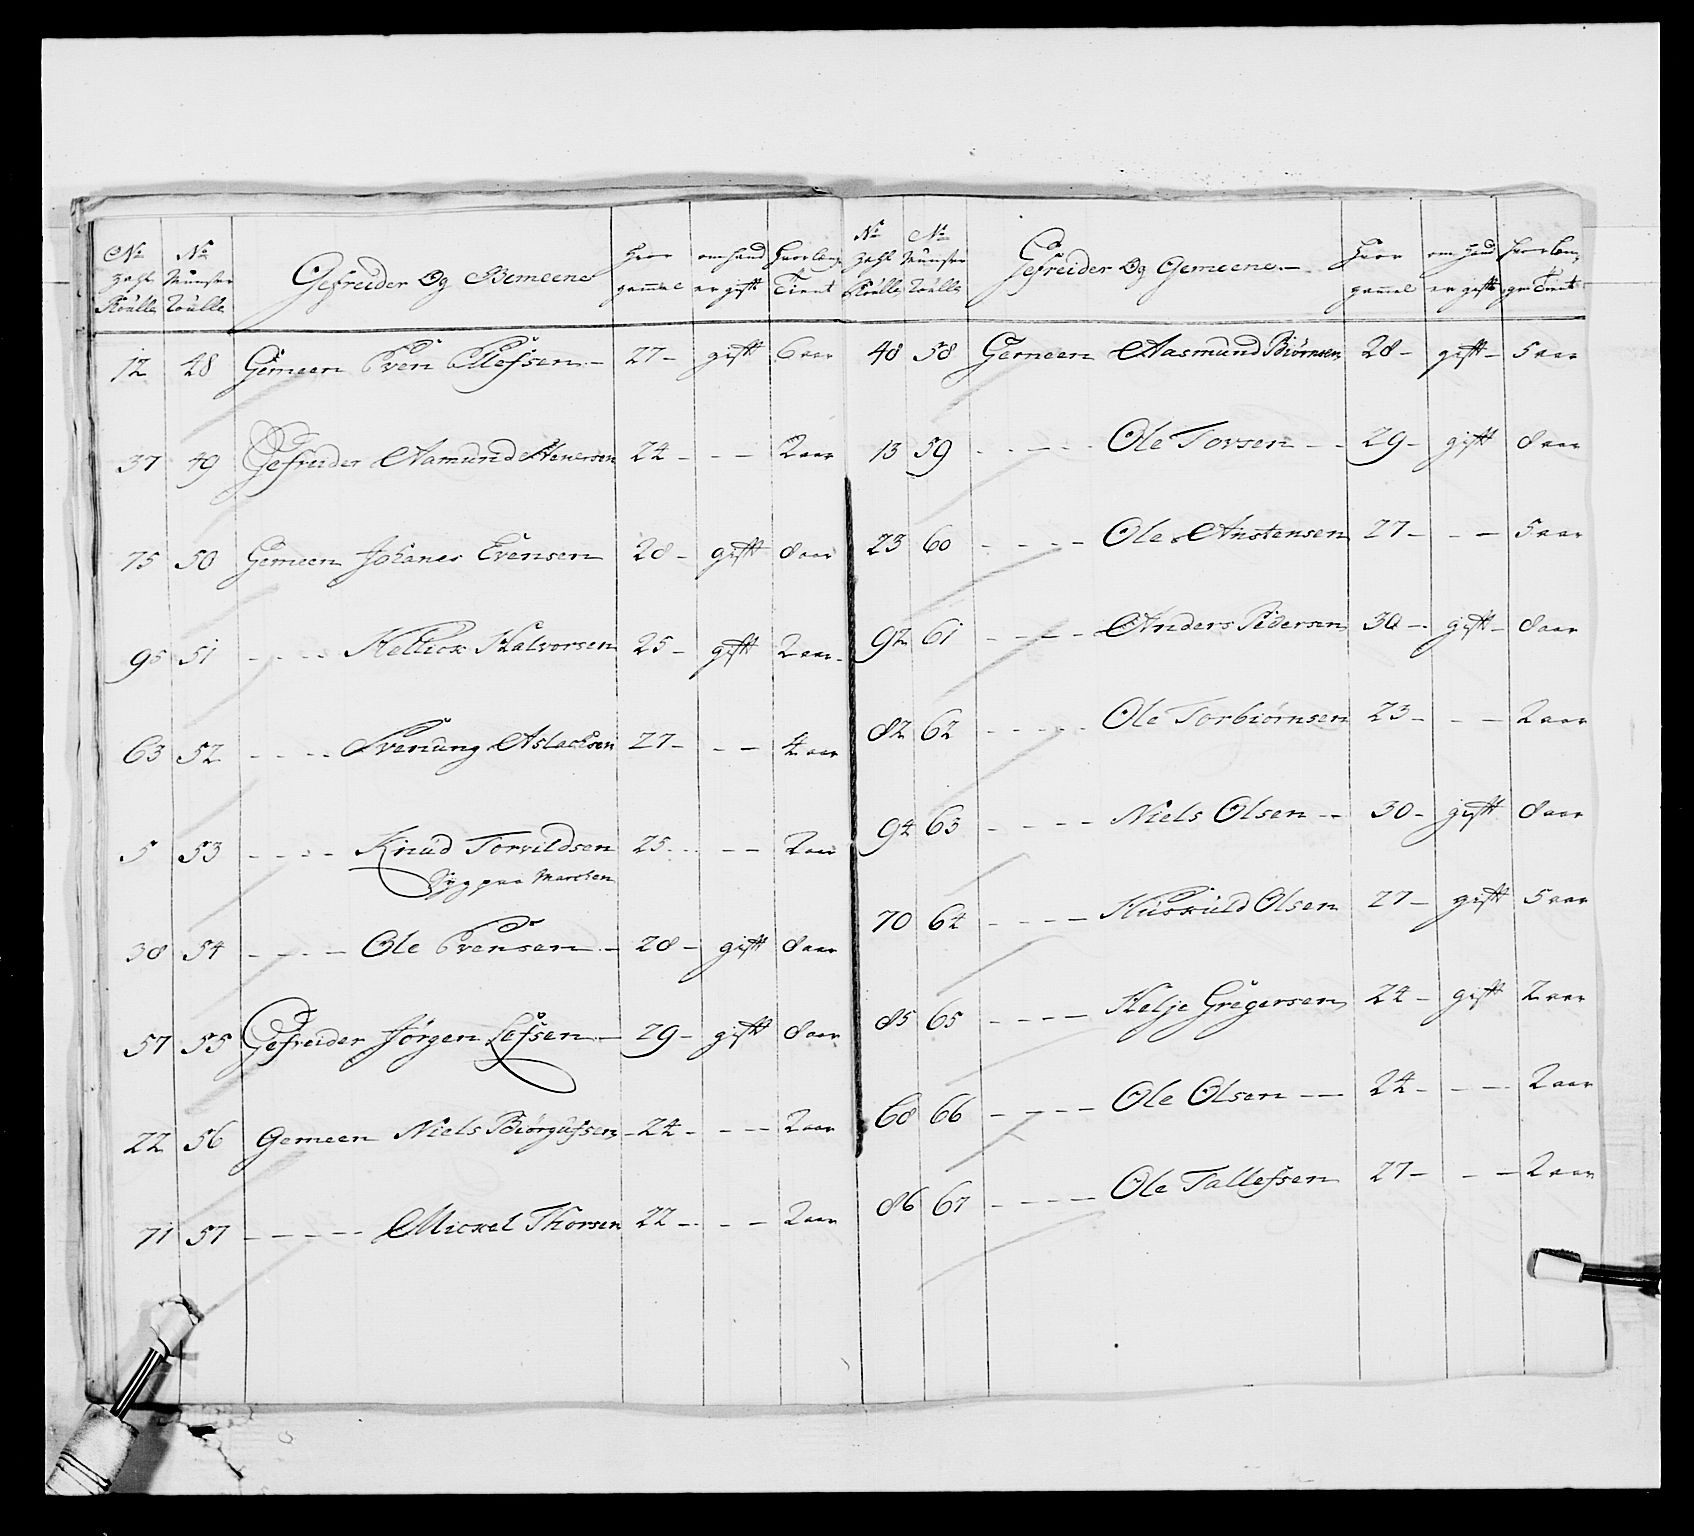 No Zahl Roulle | No Munster Roulle | Gefreider Og Gemeene | Hvor gammel | om hand er gifft | Hvor leng Tient
12 48 Gemeen Sven Ellefsen 27 gifft 6 aar
37 49 Gefreider Aamund 24 - - 2 aar
75 50 Gemeen Johanes Evensen 28 gifft 8 aar
95 51 - - - - Kettick Halvorsen 25 gifft 2 aar
63 52 - - - - Svenung Aslachsen 27 - - 4 aar
5 53 - - - - Knud Torvildsen 25 - - 2 aar
Syg paa Marchen
38 54 - - - - Ole Svensen 28 gifft 8 aar
57 55 Gefreider Jørgen Lefsen 29 gifft 8 aar
22 56 Gemeen Niels Biørgufsen 24 - - 2 aar
71 57 - - - - - Mickel Thorsen 22 - - 2 aar
No Zahl Roulle | No Munster Roulle | Gefreider Og Gemeene | Hvor gammel | om hand er gifft | Hvor leng Tient
48 58 Gemeen Aasmund Biørnsen 28 gifft 5 aar
13 59 - - - - Ole Torsen 29 gifft 8 aar
23 60 - - - - Ole Anstensen 27 - - 5 aar
92 61 - - - - Anders Pedersen 30 gifft 8 aar
82 62 - - - - - Ole Torbiørnsen 23 - - 2 aar
94 63 - - - - Niels Olsen 30 gifft 8 aar
70 64 - - - - Huskuld Olsen 27 gifft 5 aar
85 65 - - - - Helje Gregersen 24 gifft 2 aar
68 66 - - - - Ole Olsen 24 - - 2 aar
86 67 - - - - Ole Tallefsen 27 - - 2 aar